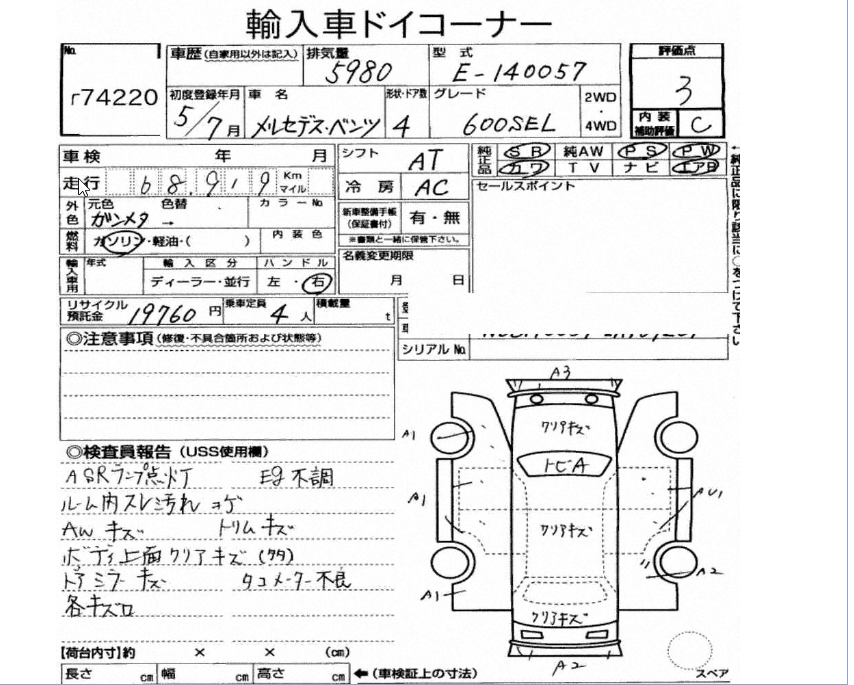 輸入車ドイコーナー
No. r74220
車歴(自家用以外は記入) 排気量 5980 型式 E-140057
初度登録年月 5/7月 車名 メルセデス・ベンツ 形状・ドア数 4 グレード 600SEL 2WD・4WD
評価点 3
内装補助評価 C
車検 年 月
走行 68,919 Km マイル
外色 元色 ガンメタ 色替 → カラーNo.
燃料 ガソリン・軽油・( ) 内装色
輸入車用 年式 輸入区分 ディーラー・並行 ハンドル 左・右
シフト AT
冷房 AC
新車整備手帳(保証書付) 有・無
※書類と一緒に保管下さい。
名義変更期限 月 日
純正品 SR 純AW PS PW
カワ TV ナビ エアB
セールスポイント
リサイクル預託金 19760円 乗車定員 4人 積載量 t
シリアルNo.
◎注意事項(修復・不具合箇所および状態等)
◎検査員報告(USS使用欄)
ASRランプ点灯 Eg不調
ルーム内スレ汚れ コゲ
AW キズ トリムキズ
ボディ上面クリアキズ
ドアミラーキズ タコメーター不良
【荷台内寸】約 × × (cm)
長さ cm 幅 cm 高さ cm ←(車検証上の寸法)
A3
A1
クリアキズ
トビA
A1
AU1
クリアキズ
A2
A1
クリアキズ
A2
スペア